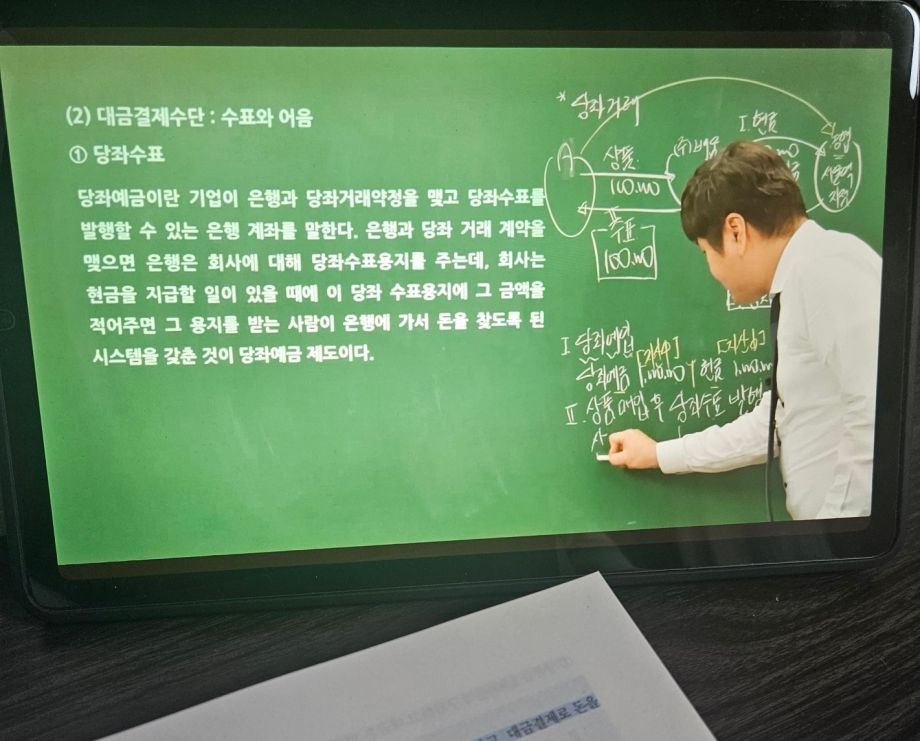 (2) 대금결제수단 : 수표와 어음
① 당좌수표
당좌예금이란 기업이 은행과 당좌거래약정을 맺고 당좌수표를
발행할 수 있는 은행 계좌를 말한다. 은행과 당좌 거래 계약을
맺으면 은행은 회사에 대해 당좌수표용지를 주는데, 회사는
현금을 지급할 일이 있을 때에 이 당좌 수표용지에 그 금액을
적어주면 그 용지를 받는 사람이 은행에 가서 돈을 찾도록 된
시스템을 갖춘 것이 당좌예금 제도이다.
* 당좌거래
I. 현금
A
상품
100,000
수표
100,000
I 당좌예입
당좌예금 1,000,000 / 현금
II. 상품매입 후 당좌수표 발행
대금결제로 돈을